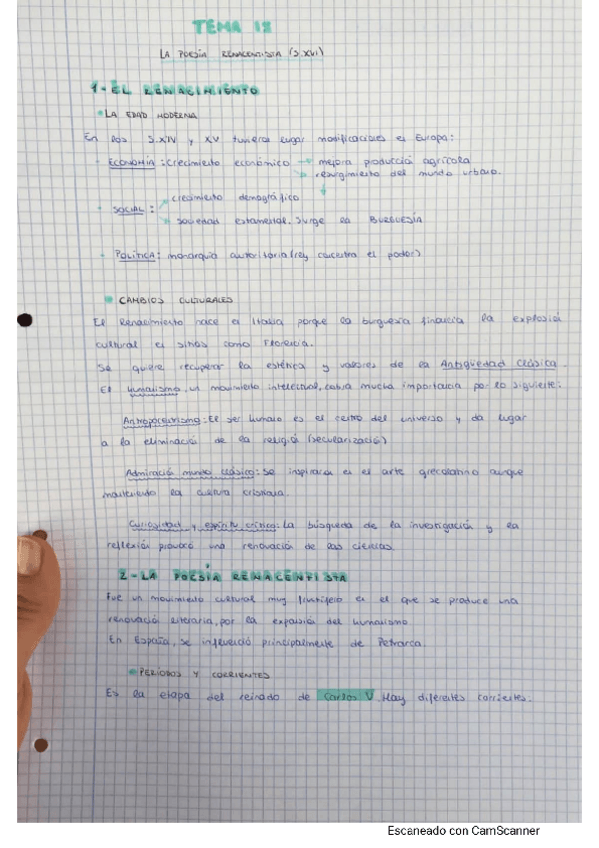 TEMA 12
LA POESÍA RENACENTISTA (S.XVI)
1- EL RENACIMIENTO
LA EDAD MODERNA
En los S.XIV y XV tuvieron lugar modificaciones en Europa:
- ECONOMÍA: Crecimiento económico → mejora producción agrícola
→ resurgimiento del mundo urbano.
- SOCIAL: → crecimiento demográfico
→ sociedad estamental. Surge la BURGUESÍA
- POLÍTICA: monarquía autoritaria (rey concentra el poder)
CAMBIOS CULTURALES
El Renacimiento nace en Italia porque la burguesía financia la explosión
cultural en sitios como Florencia.
Se quiere recuperar la estética y valores de la Antigüedad Clásica.
El humanismo, un movimiento intelectual, cobra mucha importancia por lo siguiente:
Antropocentrismo: El ser humano es el centro del universo y da lugar
a la eliminación de la religión (secularización)
Admiración mundo clásico: Se inspiraron en el arte grecolatino aunque
manteniendo la cultura cristiana.
Curiosidad y espíritu crítico: La búsqueda de la investigación y la
reflexión provocó una renovación de las ciencias.
2- LA POESÍA RENACENTISTA
Fue un movimiento cultural muy fructífero en el que se produce una
renovación literaria, por la expansión del humanismo.
En España, se influenció principalmente de Petrarca.
PERÍODOS Y CORRIENTES
Es la etapa del reinado de Carlos V. Hay diferentes corrientes.
Escaneado con CamScanner